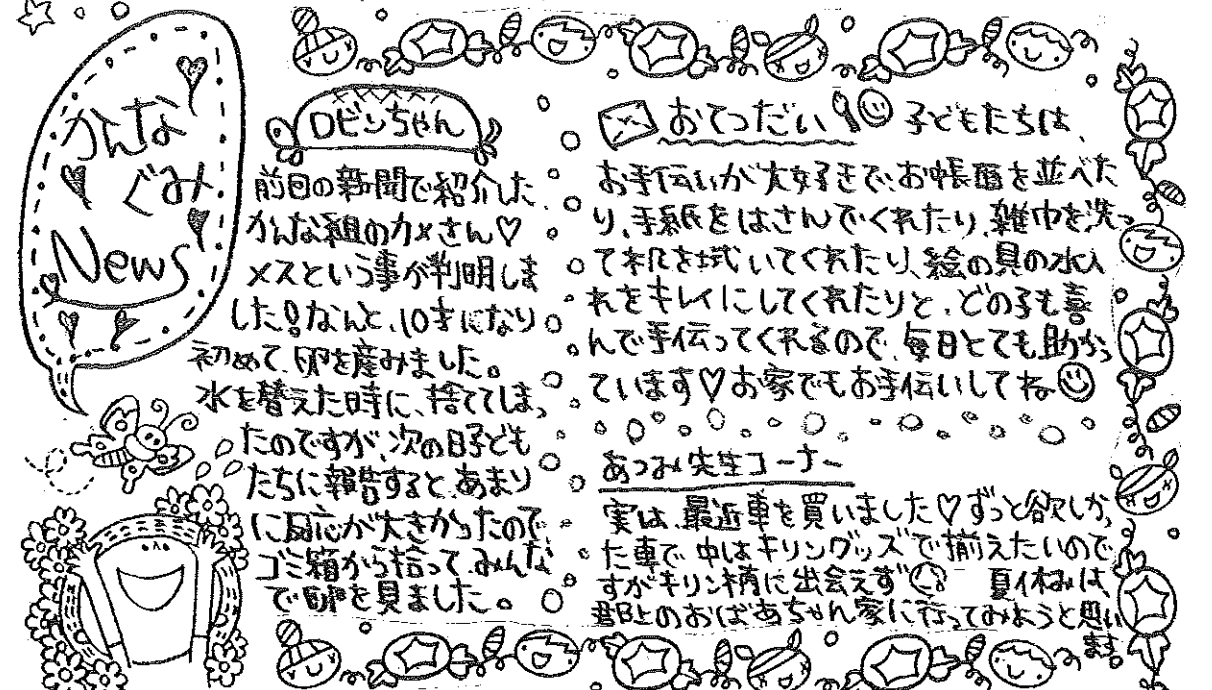 かんな
ぐみ
News
ロビンちゃん
前回の新聞で紹介した、
かんな組のカメさん♡
メスという事が判明しま
した!なんと、10才になり
初めて、卵を産みました。
水を替えた時に、捨ててしまっ
たのですが、次の日子ども
たちに報告すると、あまり
に反応が大きかったので、
ゴミ箱から拾って、みんな
で卵を見ました。
おてつだい 子どもたちは、
お手伝いが大好きで、お帳面を並べた
り、手紙をはさんでくれたり、雑巾を洗っ
て机を拭いてくれたり、絵の具の水入
れをキレイにしてくれたりと、どの子も喜
んで手伝ってくれるので、毎日とても助かっ
ています♡お家でもお手伝いしてね
あつみ先生コーナー
実は、最近車を買いました♡ずっと欲しかっ
た車で、中はキリングッズで揃えたいので
すがキリン柄に出会えず 夏休みは、
郡上のおばあちゃん家に行ってみようと思い
ます。